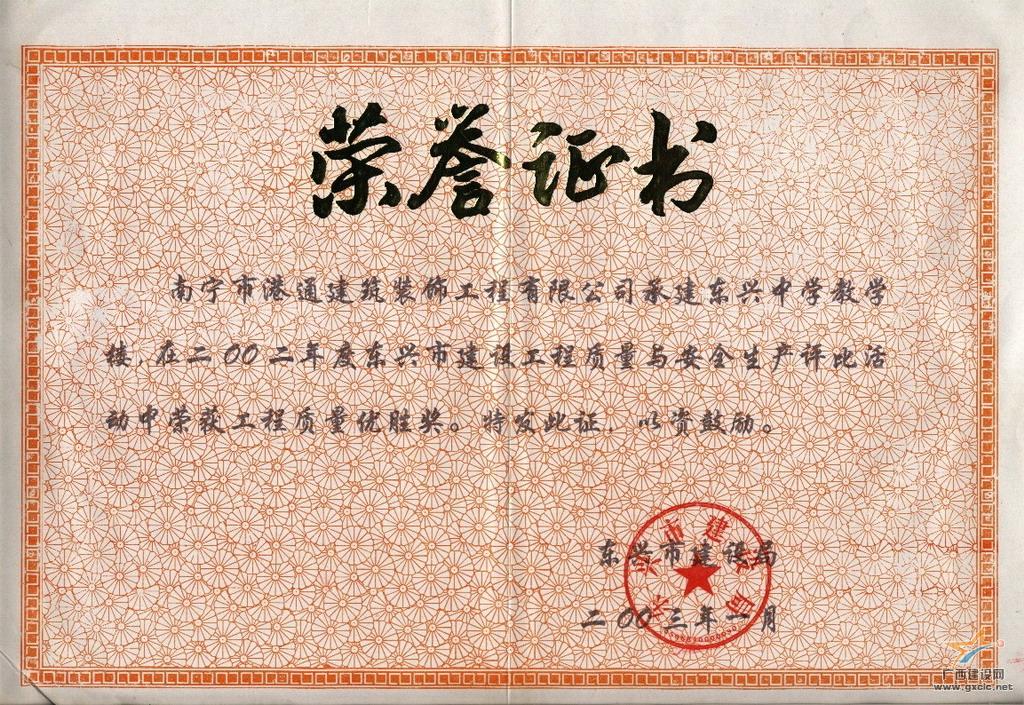 荣誉证书
南宁市港通建筑装饰工程有限公司承建东兴中学教学
楼，在二00二年度东兴市建设工程质量与安全生产评比活
动中荣获工程质量优胜奖。特发此证，以资鼓励。
东兴市建设局
东兴市建设局
二00三年一月
广西建设网
www.gxcic.net